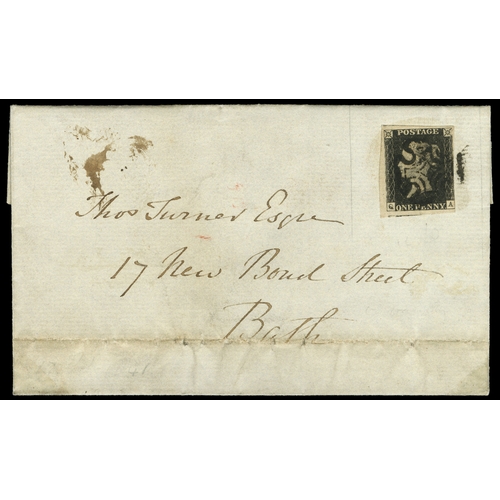 POSTAGE
C A
ONE PENNY
Thos Turner Esqre
17 New Bond Street
Bath